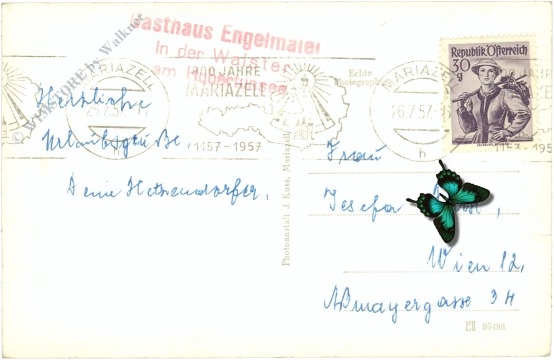 Gasthaus Engelmaier
In der Walster
am Hubertussee
© WINSTORE by Walkner
MARIAZELL
26.7.57.
800 JAHRE
MARIAZELL
1157-1957
Echte
Photographie
MARIAZELL
26.7.57.
h
1157-1957
Republik Österreich
30
g
Herzliche
Urlaubsgrüße,
Deine Hetzendorfer.
Photoanstalt J. Kuss, Mariazell
Frau
Josefa
Wien 12,
Aßmayergasse 34